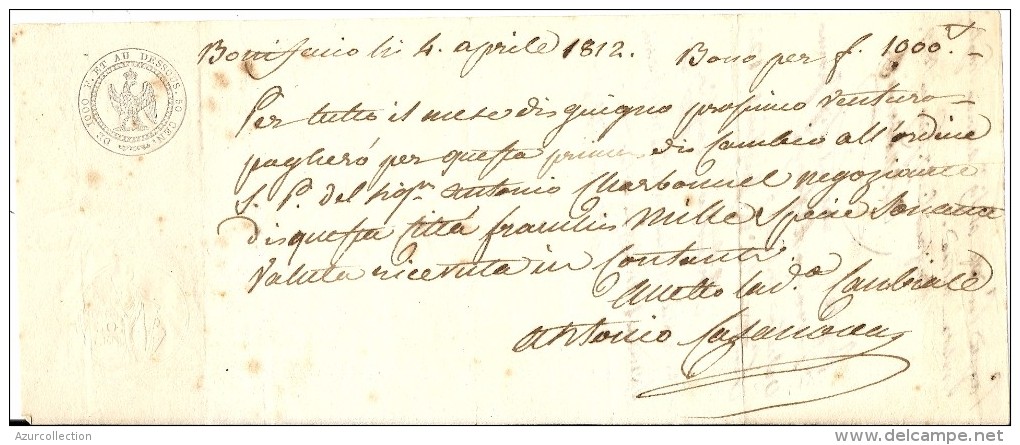 DE 1000 F. ET AU DESSOUS. 50 CEN.
Bonifacio li 4. aprile 1812. Bono per f. 1000.
Per tutto il mese di giugno prossimo venturo
pagherò per questa prima di Cambio all'ordine
S. P. del Sigr. Antonio Charbonnel negoziante
di questa Città franchi Mille Specie Sonante
Valuta ricevuta in Contanti
Accetto la Cambiale
Antonio Casanova
Azurcollection
©delcampe.net